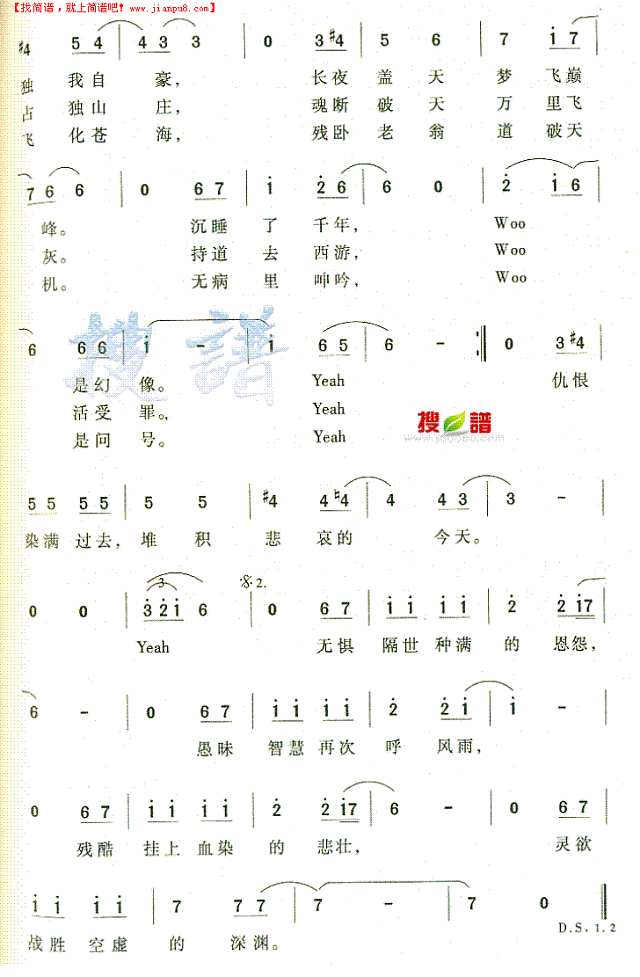 【找简谱，就上简谱吧！www.jianpu8.com】
#4 5 4 4 3 3 0 3 #4 5 6 7 1 7
独 我自 豪， 长夜 盖 天 梦 飞巅
占 独山 庄， 魂断 破 天 万 里飞
飞 化苍 海， 残卧 老 翁 道 破天
7 6 6 0 6 7 1 2 6 6 0 2 1 6
峰。 沉睡 了 千年， Woo
灰。 持道 去 西游， Woo
机。 无病 里 呻吟， Woo
6 6 6 1 - 1 6 5 6 - :|| 0 3 #4
是幻 像。 Yeah 仇恨
活受 罪。 Yeah
是问 号。 Yeah
搜谱
搜谱
5 5 5 5 5 5 #4 4 #4 4 4 3 3 -
染满 过去， 堆 积 悲 哀的 今天。
3 2.
0 0 3 2 1 6 0 6 7 1 1 1 1 2 2 1 7
Yeah 无惧 隔世 种满 的 恩怨，
6 - 0 6 7 1 1 1 1 2 2 1 1 -
愚昧 智慧 再次 呼 风雨，
0 6 7 1 1 1 1 2 2 1 7 6 - 0 6 7
残酷 挂上 血染 的 悲壮， 灵欲
1 1 1 1 7 7 7 7 - 7 0
战胜 空虚 的 深渊。
D.S. 1. 2